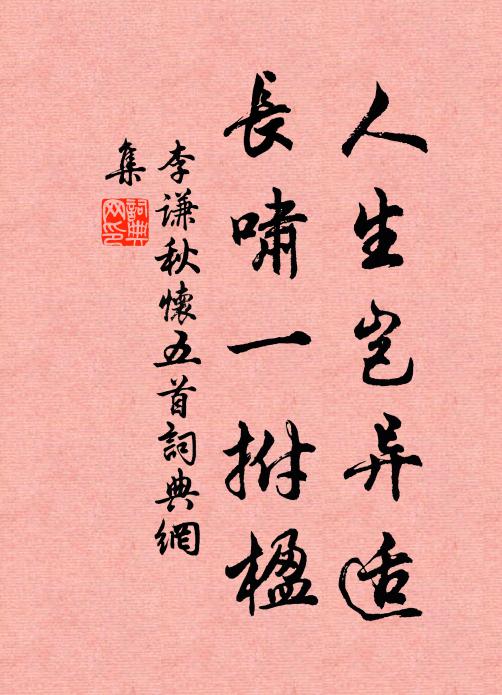 人生岂异适
長嘯一拊楹
李谦秋懷五首詞典網
集
詞典网印